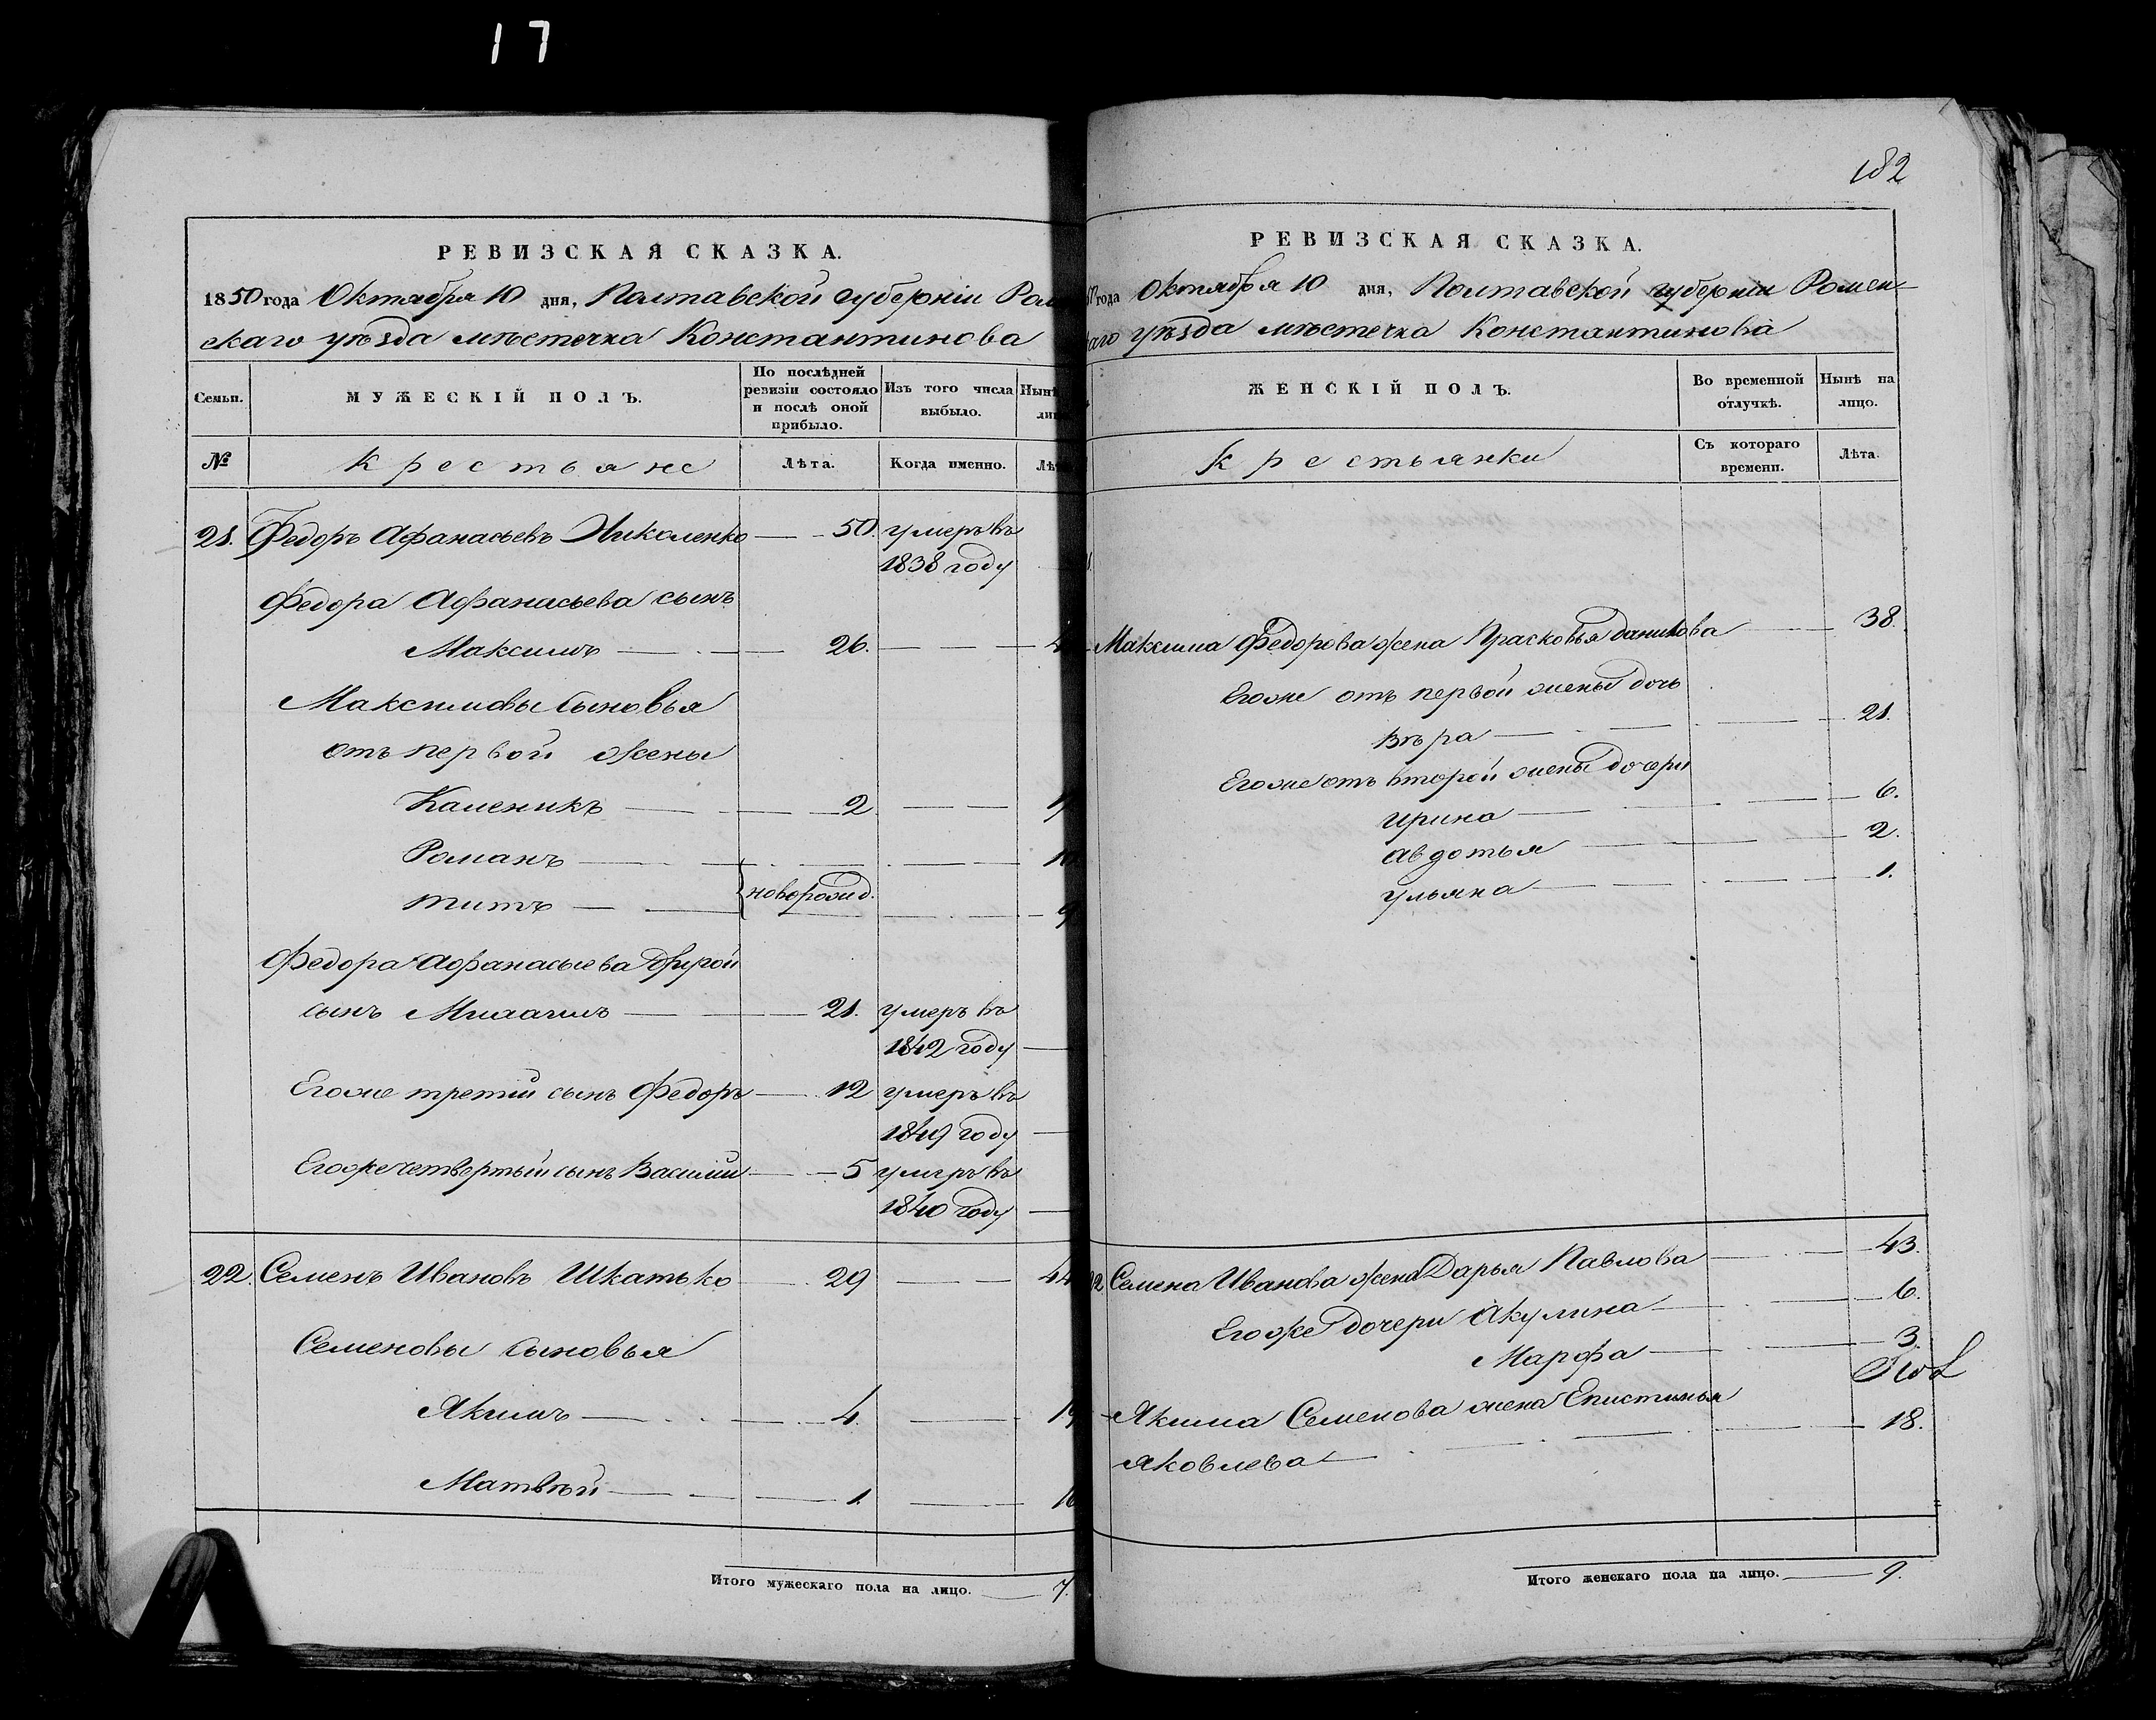 17
РЕВИЗСКАЯ СКАЗКА.
1850 года Октября 10 дня, Полтавской губерніи Ром
скаго уѣзда мѣстечка Константинова
Семьи.
МУЖЕСКІЙ ПОЛЪ.
По послѣдней ревизіи состояло и послѣ оной прибыло.
Изъ того числа выбыло.
Нынѣ
ли
№
Крестьяне
Лѣта.
Когда именно.
Лѣ
21. Федоръ Афанасьевъ Николенко 50. умеръ въ
1838 году
Федора Афанасьева сынъ
Максимъ 26. 4
Максимовы сыновья
отъ первой жены
Каменикъ 2
Романъ
новорожд.
Титъ 9
Федора Афанасьева другой
сынъ 21. умеръ въ
1842 году
Егоже третій сынъ Федоръ 12 умеръ въ
1849 году
Егоже четвертый сынъ Василій 5 умеръ въ
1840 году
22. Семенъ Ивановъ Шкатько 29 44
Семеновы сыновья
Якимъ 4. 19
Матвѣй 1. 16
Итого мужескаго пола на лицо. 7.
182
РЕВИЗСКАЯ СКАЗКА.
года Октября 10 дня, Полтавской губерніи Ромен-
аго уѣзда мѣстечка Константинова
ЖЕНСКІЙ ПОЛЪ.
Во временной отлучкѣ.
Нынѣ на лицо.
Крестьянки
Съ котораго времени.
Лѣта.
Максима Федорова жена Прасковья Данилова 38.
Егоже отъ первой жены дочь
Вѣра 21.
Егоже отъ второй жены дочери
Ирина 6.
Авдотья 2.
Ульяна 1.
Семена Иванова жена Дарья Павлова 43.
Егоже дочери Акулина 6.
Марфа 3
Якима Семенова жена Епистинья
Яковлева 18.
Итого женскаго пола на лицо. 9.